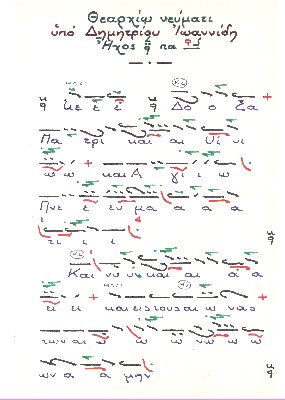 Θεαρχίῳ νεύματι
ὑπό Δημητρίου Ἰωαννίδη
Ἦχος q πα
κε ε ε Δο ο ξα
Πα τρι και αι Υι υι
ω ω και Α γι ι ω
Πνε ε ευ μα α α α
τι ι ι
Και νυ υν και αι α α
ει ει και εις τους αι ω νας
των αι ω ω ω νω ω ω
ων α α μην